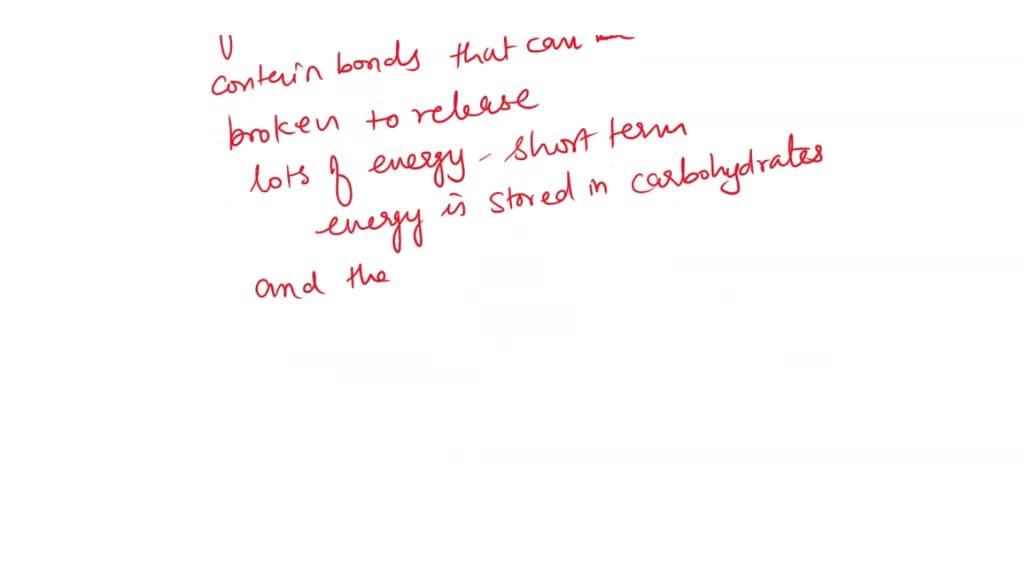 contain bonds that can
broken to release
lots of energy - short term
energy is stored in carbohydrates
and the